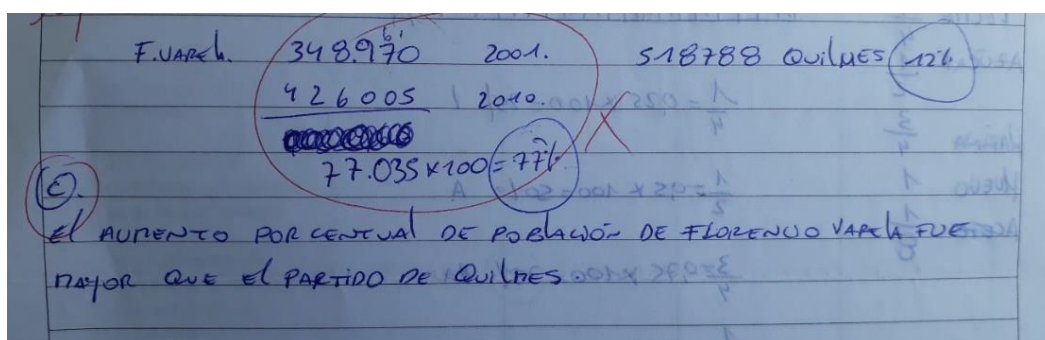 F. VARELA. 348.970 2001. 518788 QUILMES 12%
426005 2010.
77.035 x 100 = 77%
C).
El AUMENTO PORCENTUAl DE POBLACIÓN DE FLORENCIO VARELA FUE
MAYOR QUE El PARTIDO DE QUILMES.